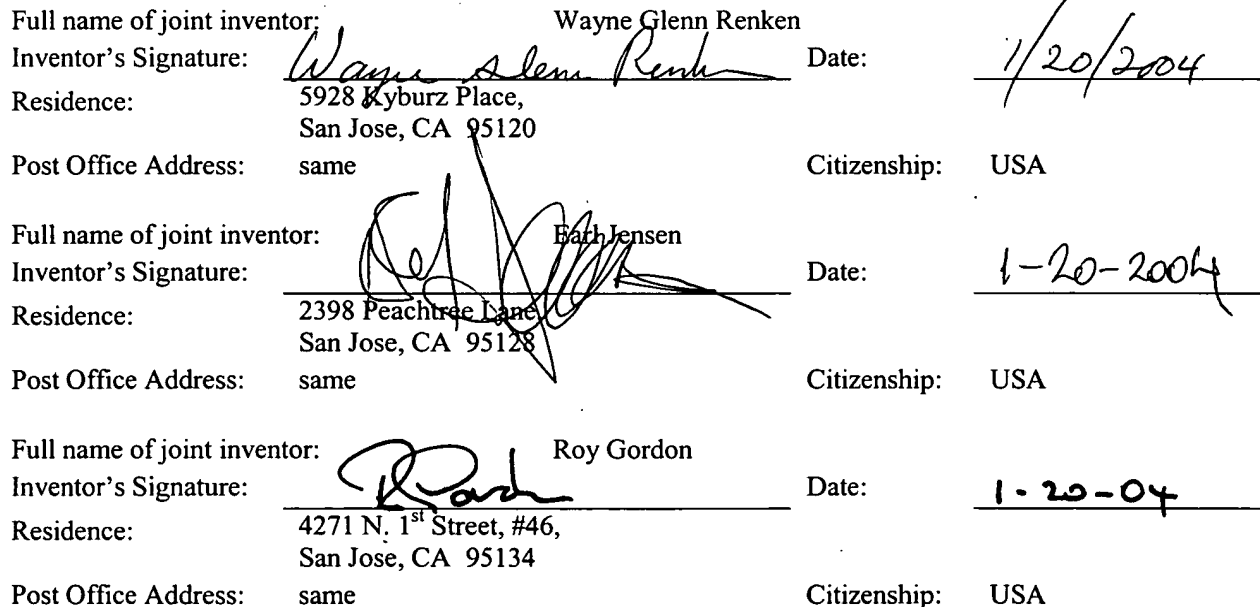 Full name of joint inventor: Wayne Glenn Renken
Inventor's Signature: Wayne Glenn Renken Date: 1/20/2004
Residence: 5928 Kyburz Place,
San Jose, CA 95120
Post Office Address: same Citizenship: USA
Full name of joint inventor: Earl Jensen
Inventor's Signature: Date: 1-20-2004
Residence: 2398 Peachtree Lane
San Jose, CA 95128
Post Office Address: same Citizenship: USA
Full name of joint inventor: Roy Gordon
Inventor's Signature: Date: 1-20-04
Residence: 4271 N. 1st Street, #46,
San Jose, CA 95134
Post Office Address: same Citizenship: USA